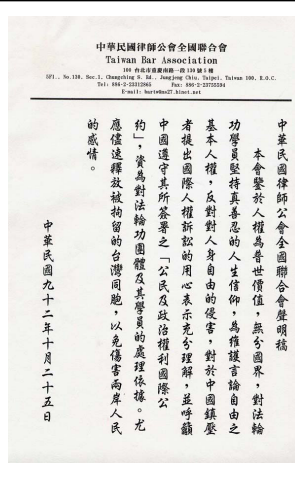 中華民國律師公會全國聯合會
Taiwan Bar Association
100 台北市重慶南路一段 130 號 5 樓
5Fl., No.130, Sec.1, Chungching S. Rd., Jungjeng Chiu, Taipei, Taiwan 100, R.O.C.
Tel: 886-2-23312865 Fax: 886-2-23755594
E-mail: bartw@ms27.hinet.net
中華民國律師公會全國聯合會聲明稿
本會鑒於人權為普世價值，無分國界，對法輪
功學員堅持真善忍的人生信仰，為維護言論自由之
基本人權，反對對人身自由的侵害，對於中國鎮壓
者提出國際人權訴訟的用心表示充分理解，並呼籲
中國遵守其所簽署之「公民及政治權利國際公
約」，資為對法輪功團體及其學員的處理依據。尤
應儘速釋放被拘留的台灣同胞，以免傷害兩岸人民
的感情。
中華民國九十二年十月二十五日